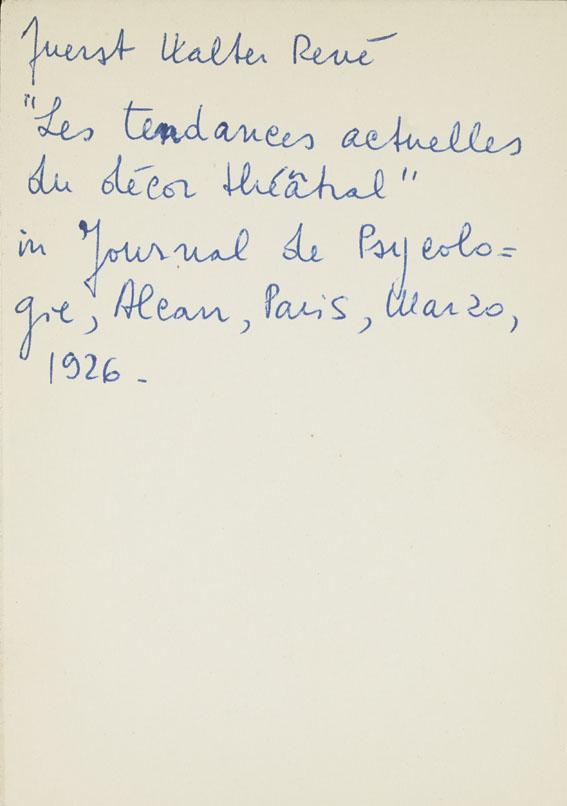 Fuerst Walter René
"Les tendances actuelles
du décor théâtral"
in Journal de Psycolo=
gie, Alcan, Paris, Marzo,
1926.